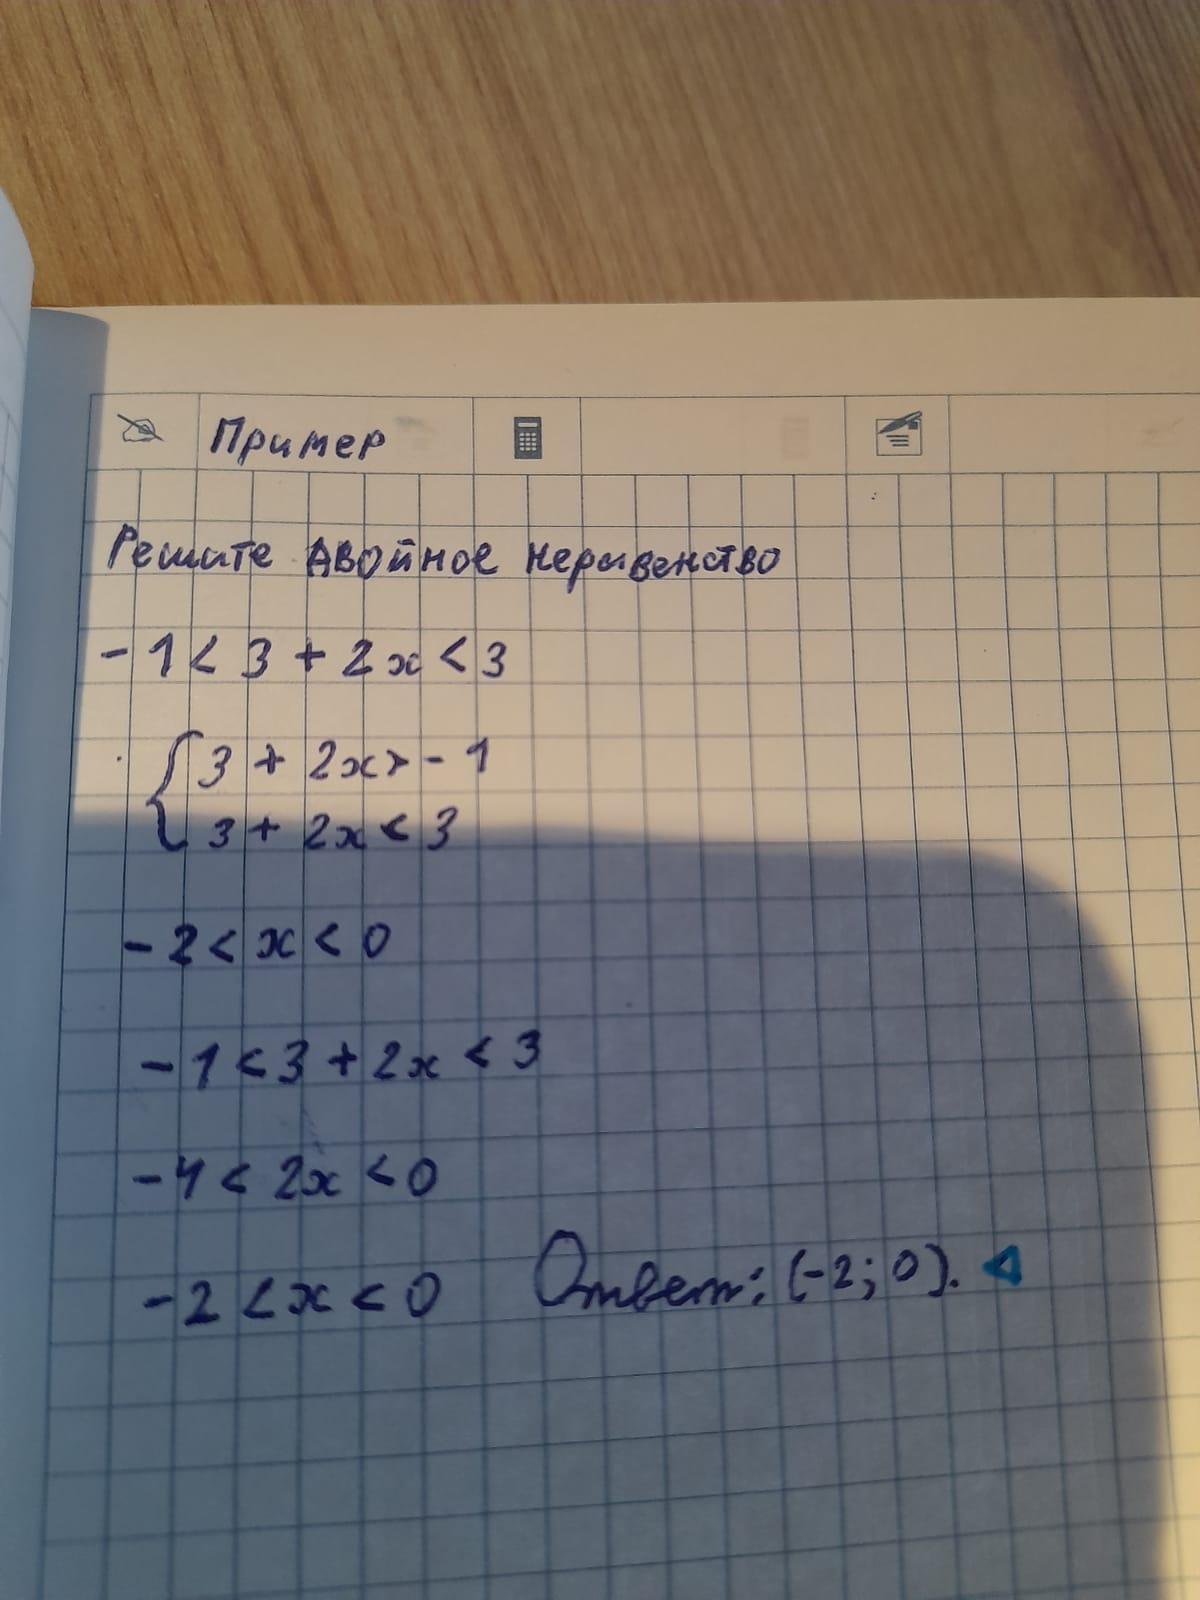 Пример
Решите двойное неравенство
-1 < 3 + 2x < 3
{ 3 + 2x > -1
3 + 2x < 3
-2 < x < 0
-1 < 3 + 2x < 3
-4 < 2x < 0
-2 < x < 0 Ответ: (-2; 0).